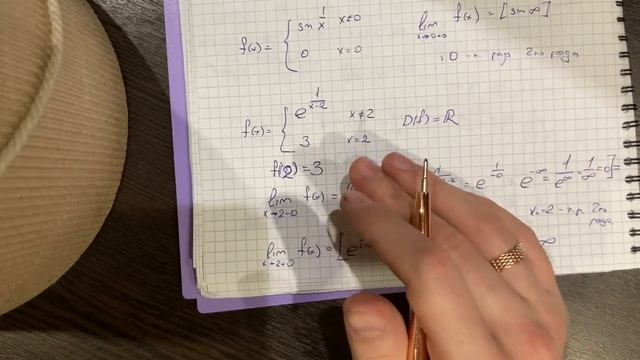 f(x) = { sin 1/x x≠0
0 x=0
lim x→0+0 f(x) = [sin ∞]
, 0 - т. рар 2го рода
f(x) = { e^(1/(x-2)) x≠2
3 x=2
D(f) = ℝ
f(2) = 3
lim x→2-0 f(x) = = e^(1/-0) = e^-∞ = 1/e^∞ = 1/∞ = 0] =
x=2 - т.р. 2го рода
lim x→2+0 f(x) = [e ∞